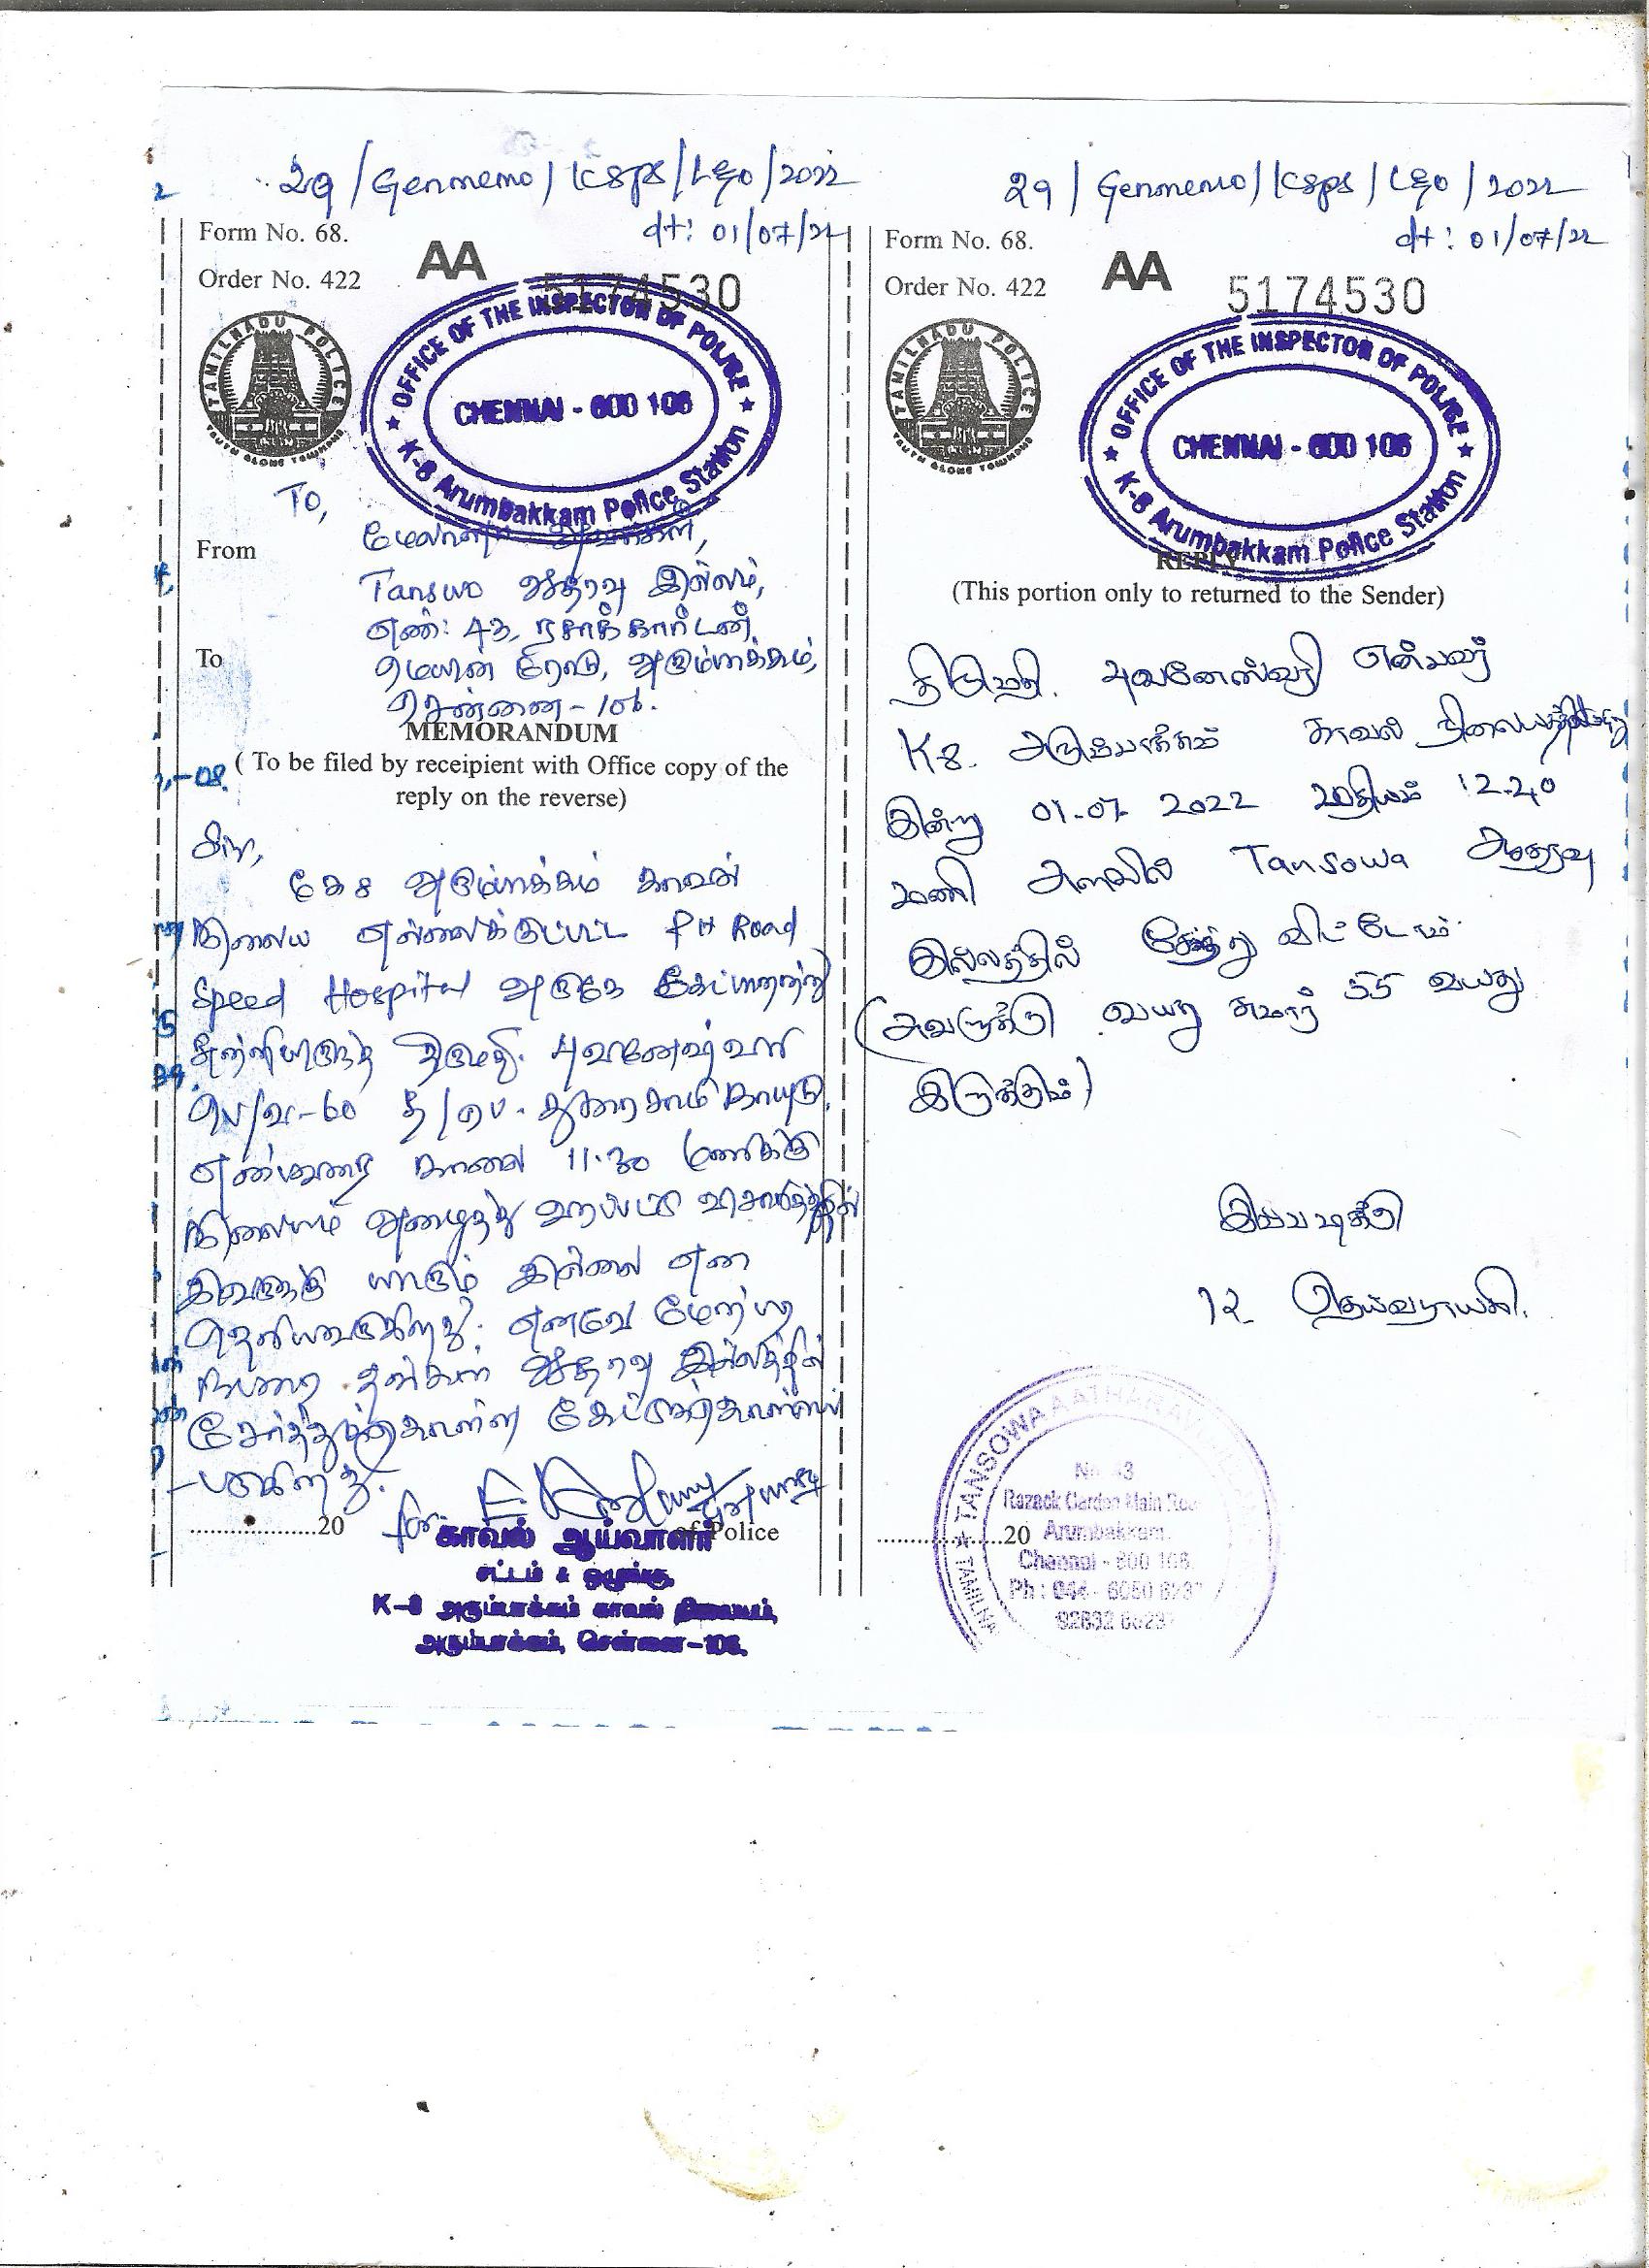 29/Genmemo/K8ps/L&o/2022
dt: 01/07/22
Form No. 68.
Order No. 422
AA 5174530
TAMILNADU POLICE
TRUTH ALONE TRIUMPHS
OFFICE OF THE INSPECTOR OF POLICE
CHENNAI - 600 106
K-8 Arumbakkam Police Station
To,
From
மேலாளர் அவர்கள்,
Tanswo ஆதரவு இல்லம்,
எண்: 43, ரசாக் கார்டன்,
To
மெயின் ரோடு, அரும்பாக்கம்,
சென்னை - 106.
MEMORANDUM
( To be filed by receipient with Office copy of the
reply on the reverse)
ஐயா,
கே 8 அரும்பாக்கம் காவல்
நிலைய எல்லைக்குட்பட்ட PH Road
Speed Hospital அருகே கேட்பாரற்று
சுற்றியிருந்த திருமதி. புவனேஷ்வரி
பெ/வ-60 த/பெ. துரைசாமி நாயுடு,
என்பவரை காலை 11.30 மணிக்கு
நிலையம் அழைத்து வரப்பட்டு விசாரித்ததில்
இவருக்கு யாரும் இல்லை என
தெரியவருகிறது. எனவே மேற்படி
நபரை தங்கள் ஆதரவு இல்லத்தில்
சேர்த்துக்கொள்ள கேட்டுக்கொள்ளப்
-படுகிறது.
for
..................20 of Police
காவல் ஆய்வாளர்
சட்டம் & ஒழுங்கு,
K-8 அரும்பாக்கம் காவல் நிலையம்,
அரும்பாக்கம், சென்னை-106.
29/Genmemo/K8ps/L&o/2022
dt: 01/07/22
Form No. 68.
Order No. 422
AA 5174530
TAMILNADU POLICE
TRUTH ALONE TRIUMPHS
OFFICE OF THE INSPECTOR OF POLICE
CHENNAI - 600 106
K-8 Arumbakkam Police Station
REPLY
(This portion only to returned to the Sender)
திருமதி. புவனேஸ்வரி என்பவர்
K8. அரும்பாக்கம் காவல் நிலையத்திலிருந்து
இன்று 01-07-2022 மதியம் 12.40
மணி அளவில் Tansowa ஆதரவு
இல்லத்தில் சேர்த்து விட்டோம்.
(அவருக்கு வயது சுமார் 55 வயது
இருக்கும்)
இப்படிக்கு
R தெய்வநாயகி.
..................20
TANSOWA AATHARAVU
TAMILN
No 43
Razack Garden Main Road
Arumbakkam,
Chennai - 600 106.
Ph : 044 -